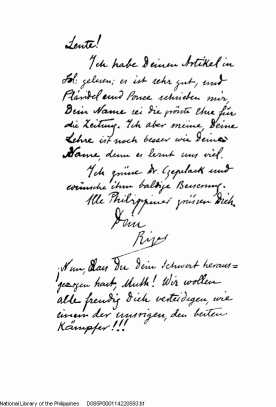 Leute!
Ich habe Deinen Artikel in
Sol. gelesen; es ist sehr gut, und
Plaridel und Ponce schrieben mir,
Dein Name sei die grösste Ehre für
die Zeitung. Ich aber meine, Deine
Lehre ist noch besser wie Deine
Name, denn es lernt uns viel.
Ich grüsse Dr. Czepelack und
wünsche ihm baldige Besserung.
Alle Philippiner grüssen Dich
Dein
Rizal
Nun, dass Du Dein Schwert heraus-
gezogen hast, Muth! Wir wollen
alle freudig Dich verteidigen, wie
einem der unsrigen, den besten
Kämpfer!!!
National Library of the Philippines D085R00011422B593.tif